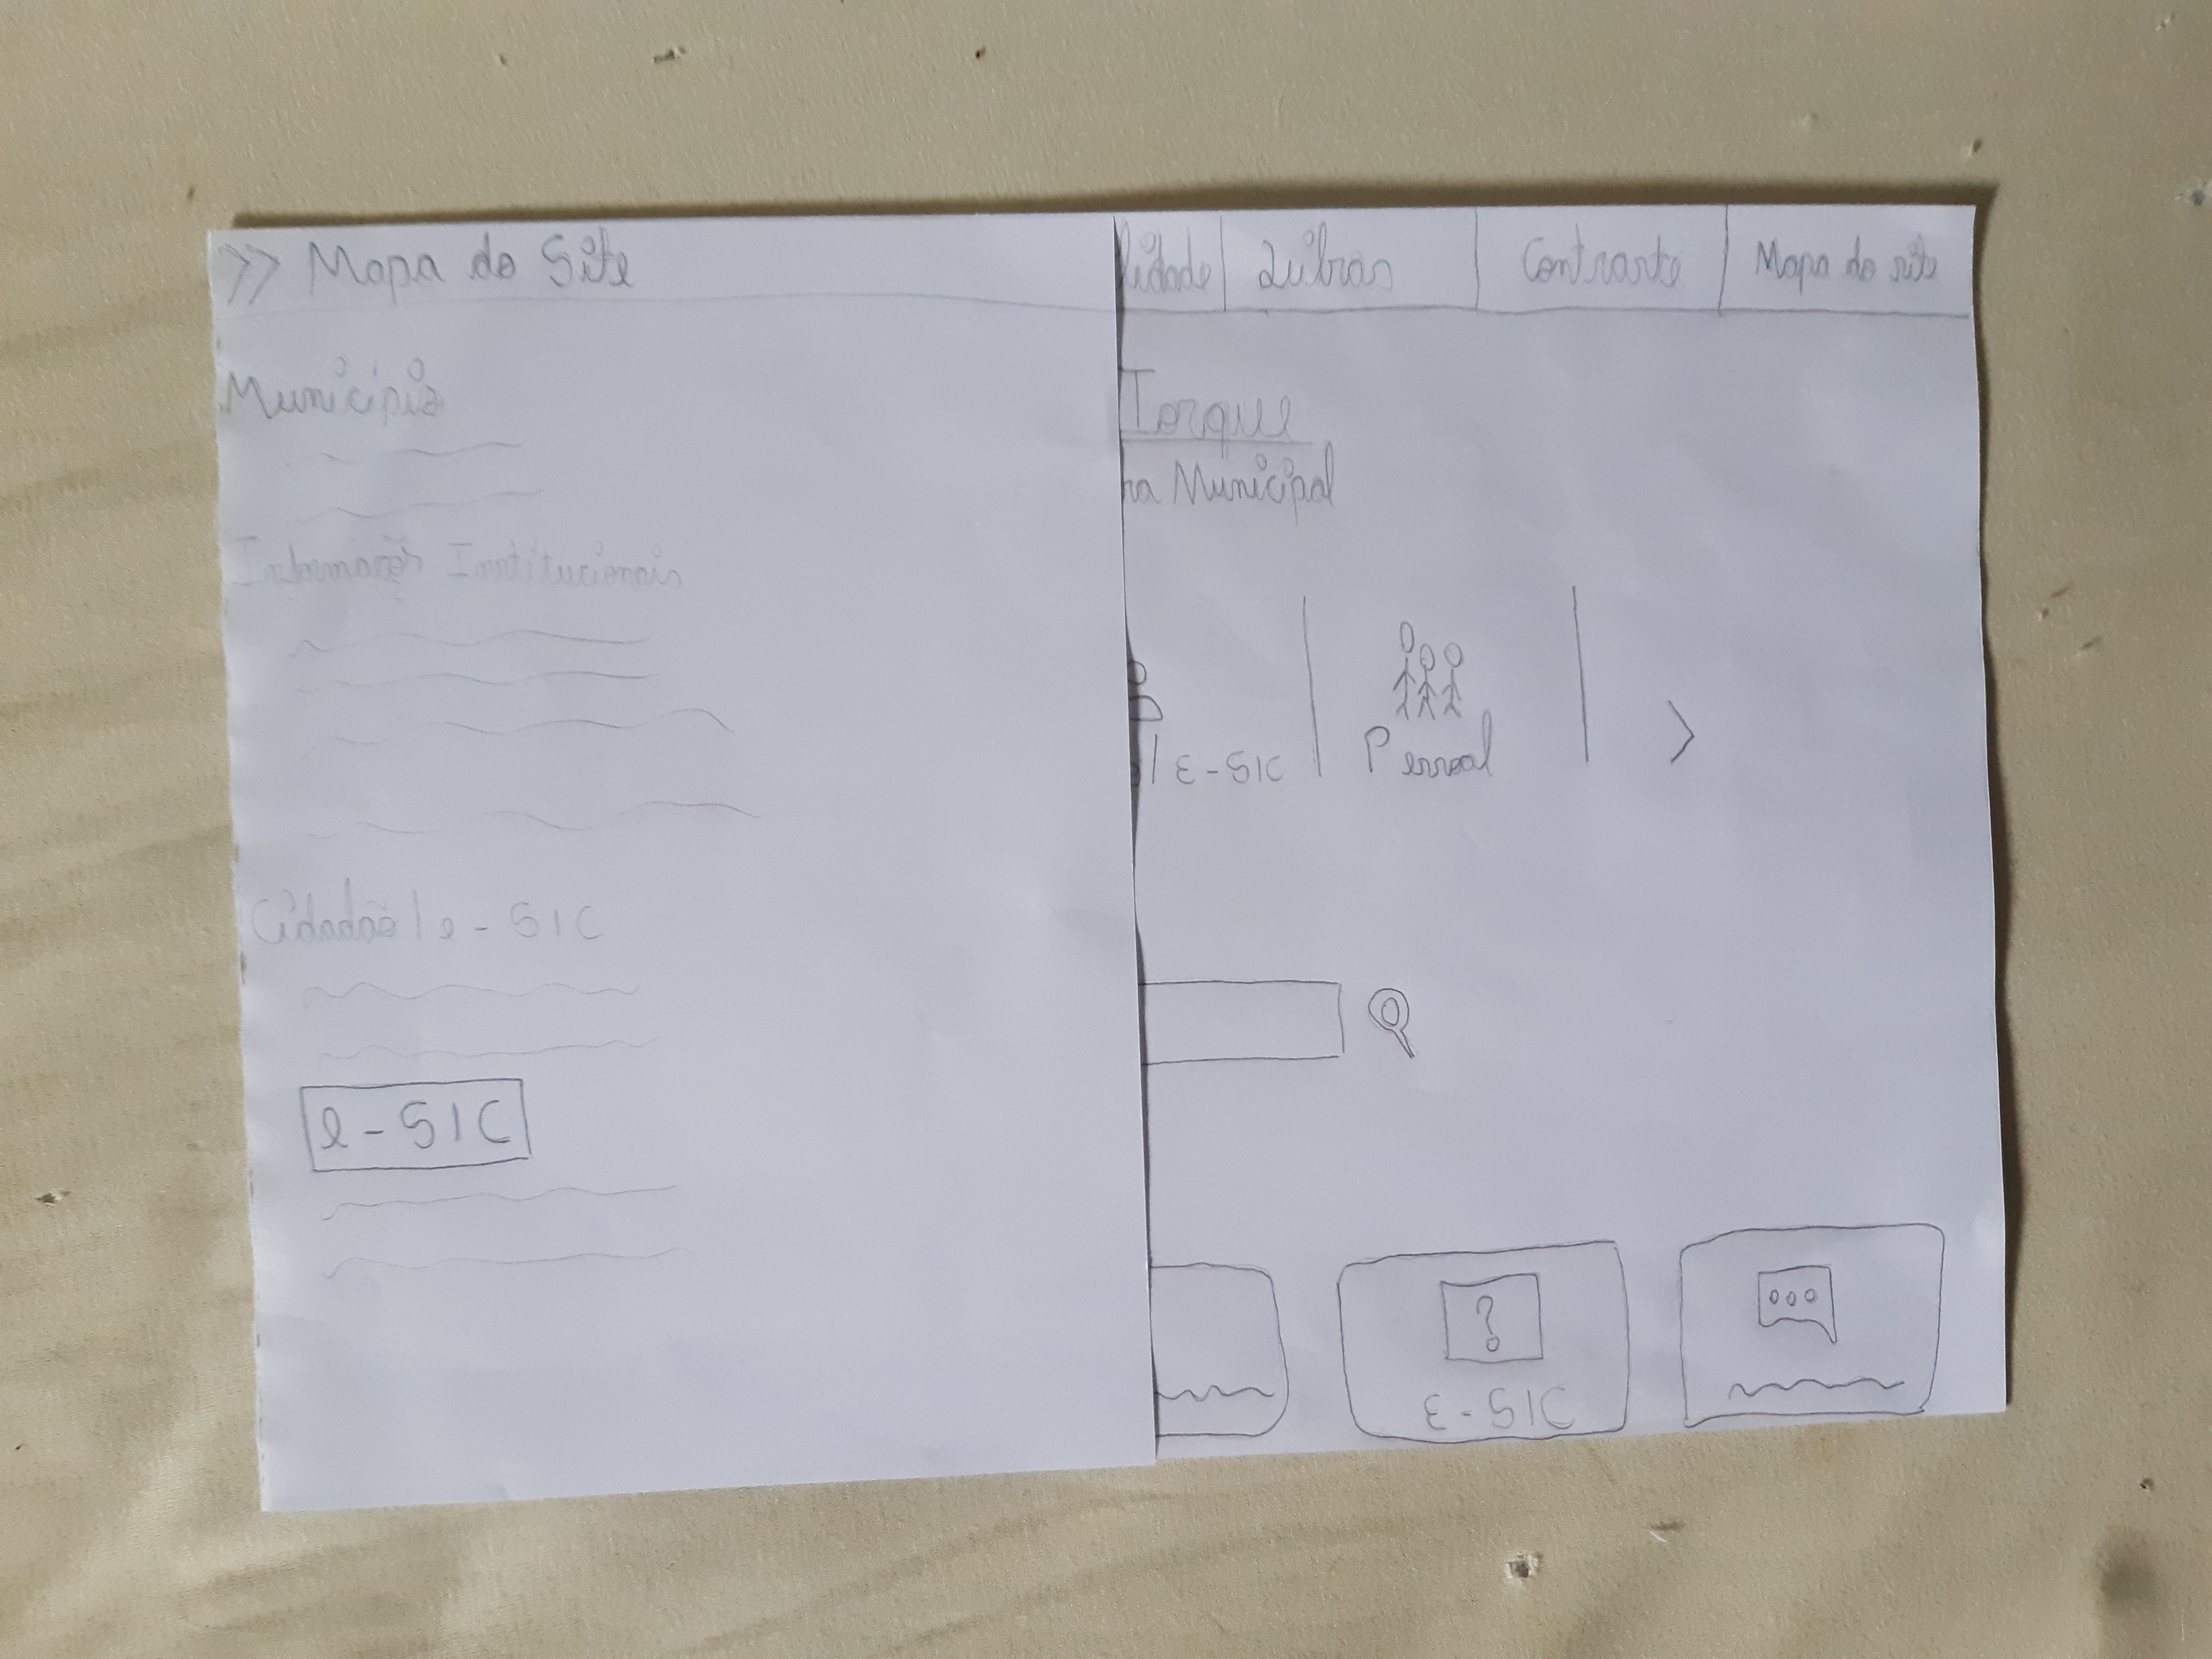 >> Mapa do Site
Município
Informação Institucionais
Cidadão | e - SIC
e - SIC
lidade | Libras | Contraste | Mapa do site
Torque
ra Municipal
| E - SIC
Pessoal
>
?
E - SIC